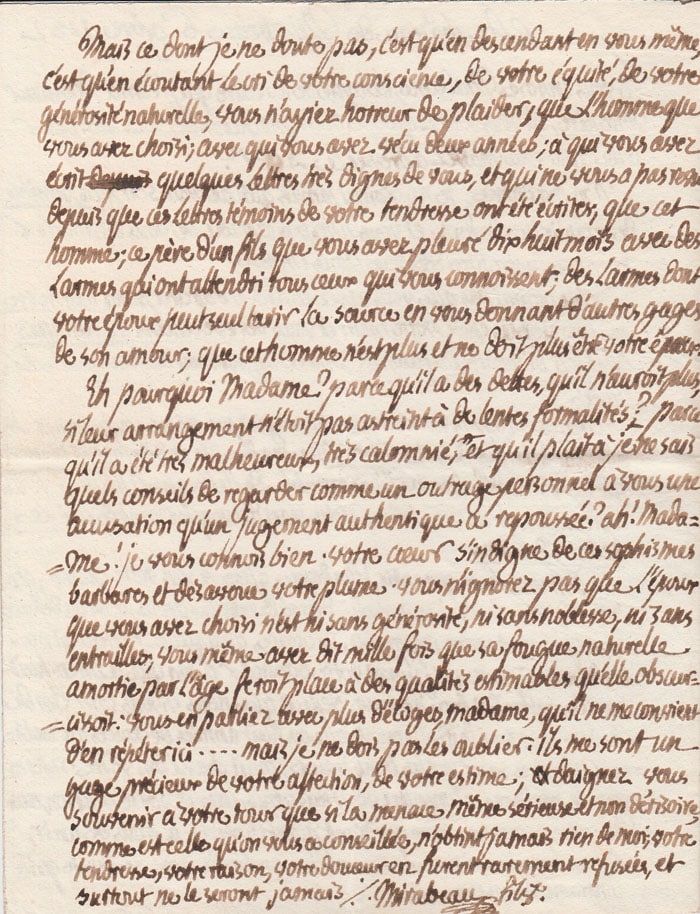 Mais ce dont je ne doute pas, c'est qu'en descendant en vous même,
c'est qu'en écoutant le cri de votre conscience, de votre équité, de votre
générosité naturelle, vous n'ayiez horreur de plaider; que l'homme que
vous avez choisi; avec qui vous avez vécu deux années; à qui vous avez
écrit quelques lettres très dignes de vous, et qui ne vous a pas
depuis que ces lettres témoins de votre tendresse ont été écrites, que cet
homme; ce père d'un fils que vous avez pleuré dix huit mois avec des
larmes qui ont attendri tous ceux qui vous connoissent; des larmes dont
votre époux peut seul tarir la source en vous donnant d'autres gages
de son amour; que cet homme n'est plus et ne doit plus être votre époux.
Eh pourquoi Madame? parce qu'il a des dettes, qu'il n'auroit plus
si leur arrangement n'étoit pas astreint à de lentes formalités? parce
qu'il a été très malheureux, très calomnié, et qu'il plait à je ne sais
quels conseils de regarder comme un outrage personnel à vous une
accusation qu'un jugement authentique a repoussée? ah! Mada-
=me! je vous connois bien. votre cœur s'indigne de ces sophismes
barbares et désavoue votre plume. vous n'ignorez pas que l'époux
que vous avez choisi n'est ni sans générosité, ni sans noblesse, ni sans
entrailles; vous même avez dit mille fois que sa fougue naturelle
amortie par l'âge feroit place à des qualités estimables qu'elle obscur-
=cissoit: vous en parliez avec plus d'éloges, madame, qu'il ne me convient
d'en répéter ici ..... mais je ne dois pas les oublier. ils me sont un
gage précieux de votre affection, de votre estime; daignez vous
souvenir à votre tour que si la menace même sérieuse et non dérisoire,
comme est celle qu'on vous a conseillée, n'obtint jamais rien de moi, votre
tendresse, votre raison, votre douceur en furent rarement refusées, et
surtout ne le seront jamais /. Mirabeau fils.